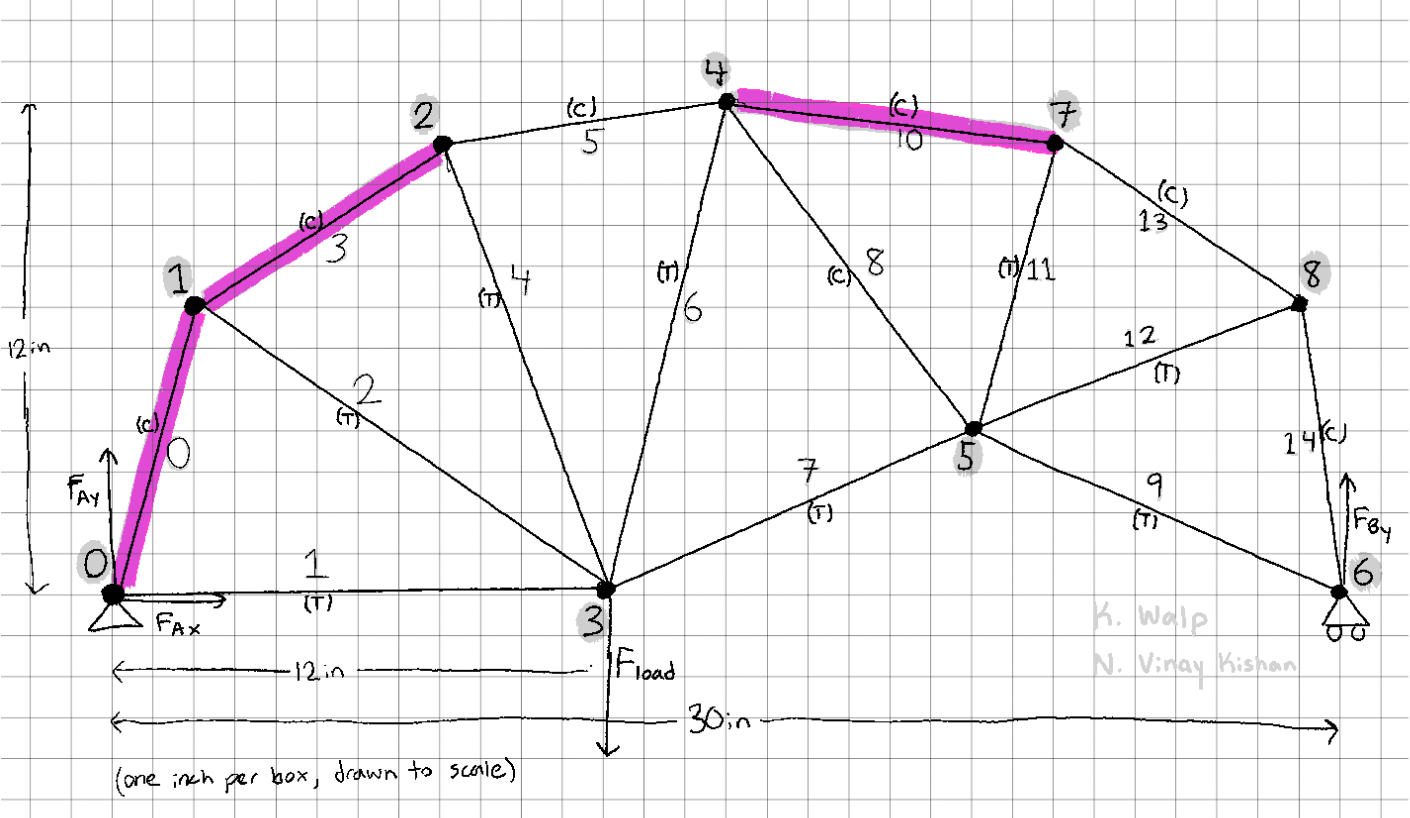 4
(C)
7
2
(C)
5
10
(C)
13
(C)
3
1
8
(T)
4
(T)
6
(C)
8
(T)
11
12in
12
(T)
2
(T)
(C)
0
14
(C)
5
7
(T)
9
(T)
FAy
FBy
0
1
(T)
FAx
3
6
K. Walp
N. Vinay Kishan
12in
Fload
30in
(one inch per box, drawn to scale)